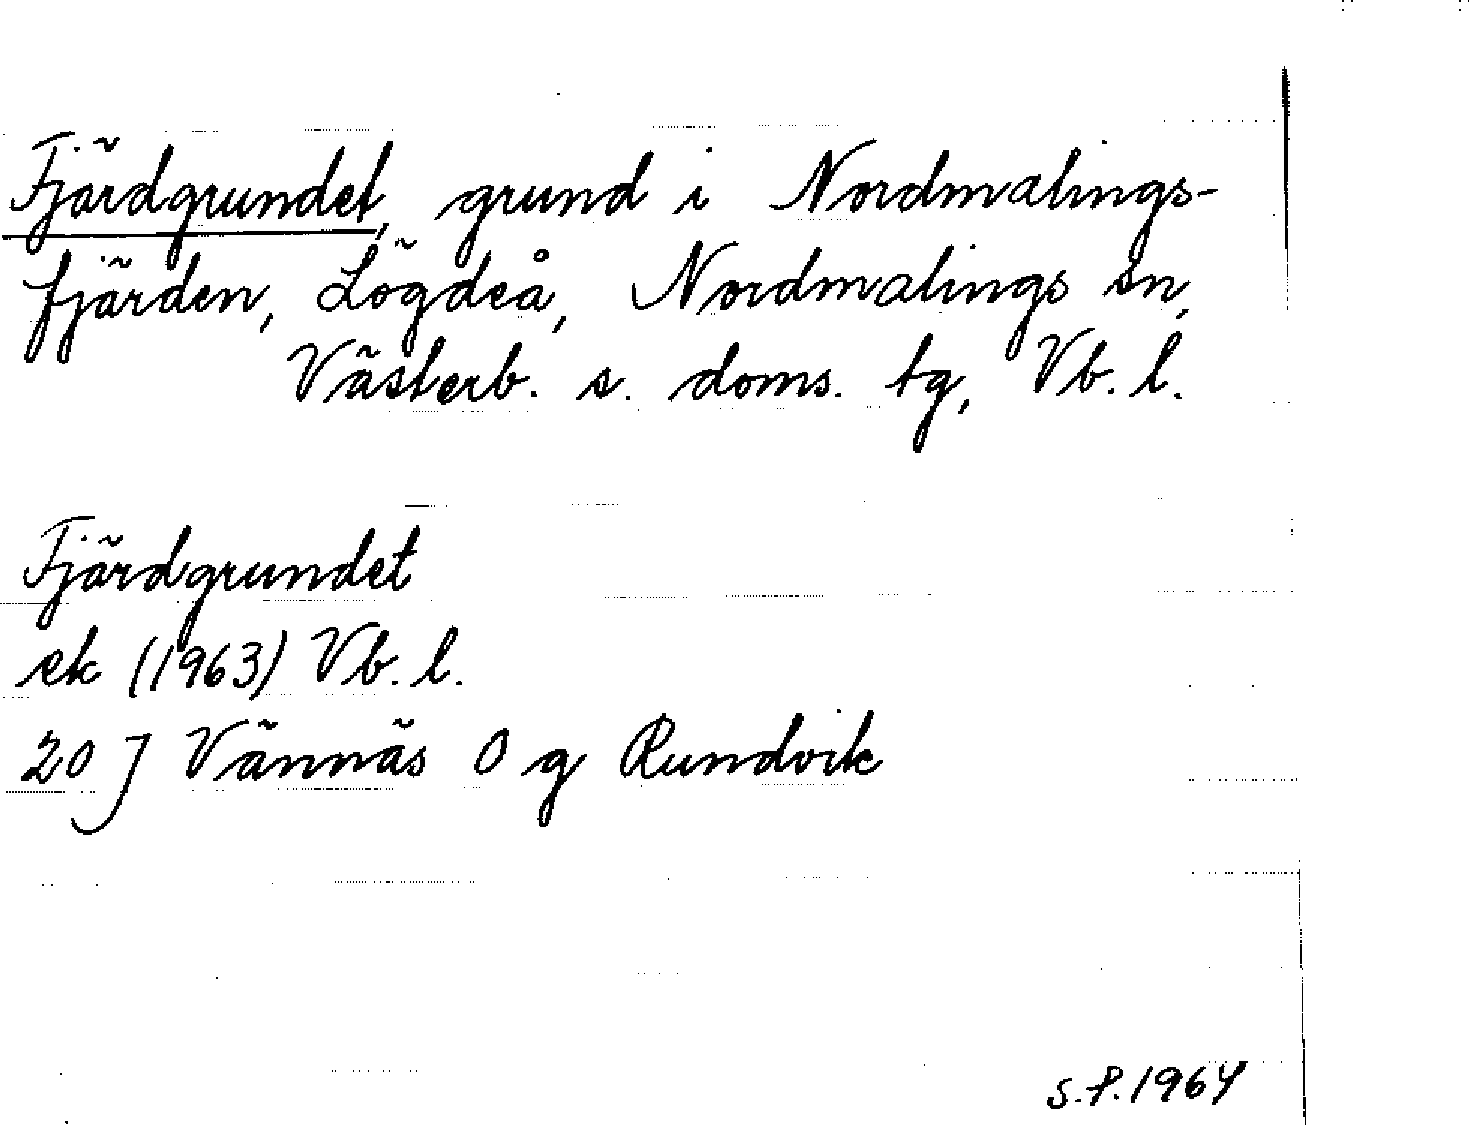 Fjärdgrundet, grund i Nordmalings-
fjärden, Lögdeå, Nordmalings sn,
Västerb. s. doms. tg, Vb. l.
Fjärdgrundet
ek (1963) Vb. l.
20 J Vännäs 0 g Rundvik
S.P. 1964